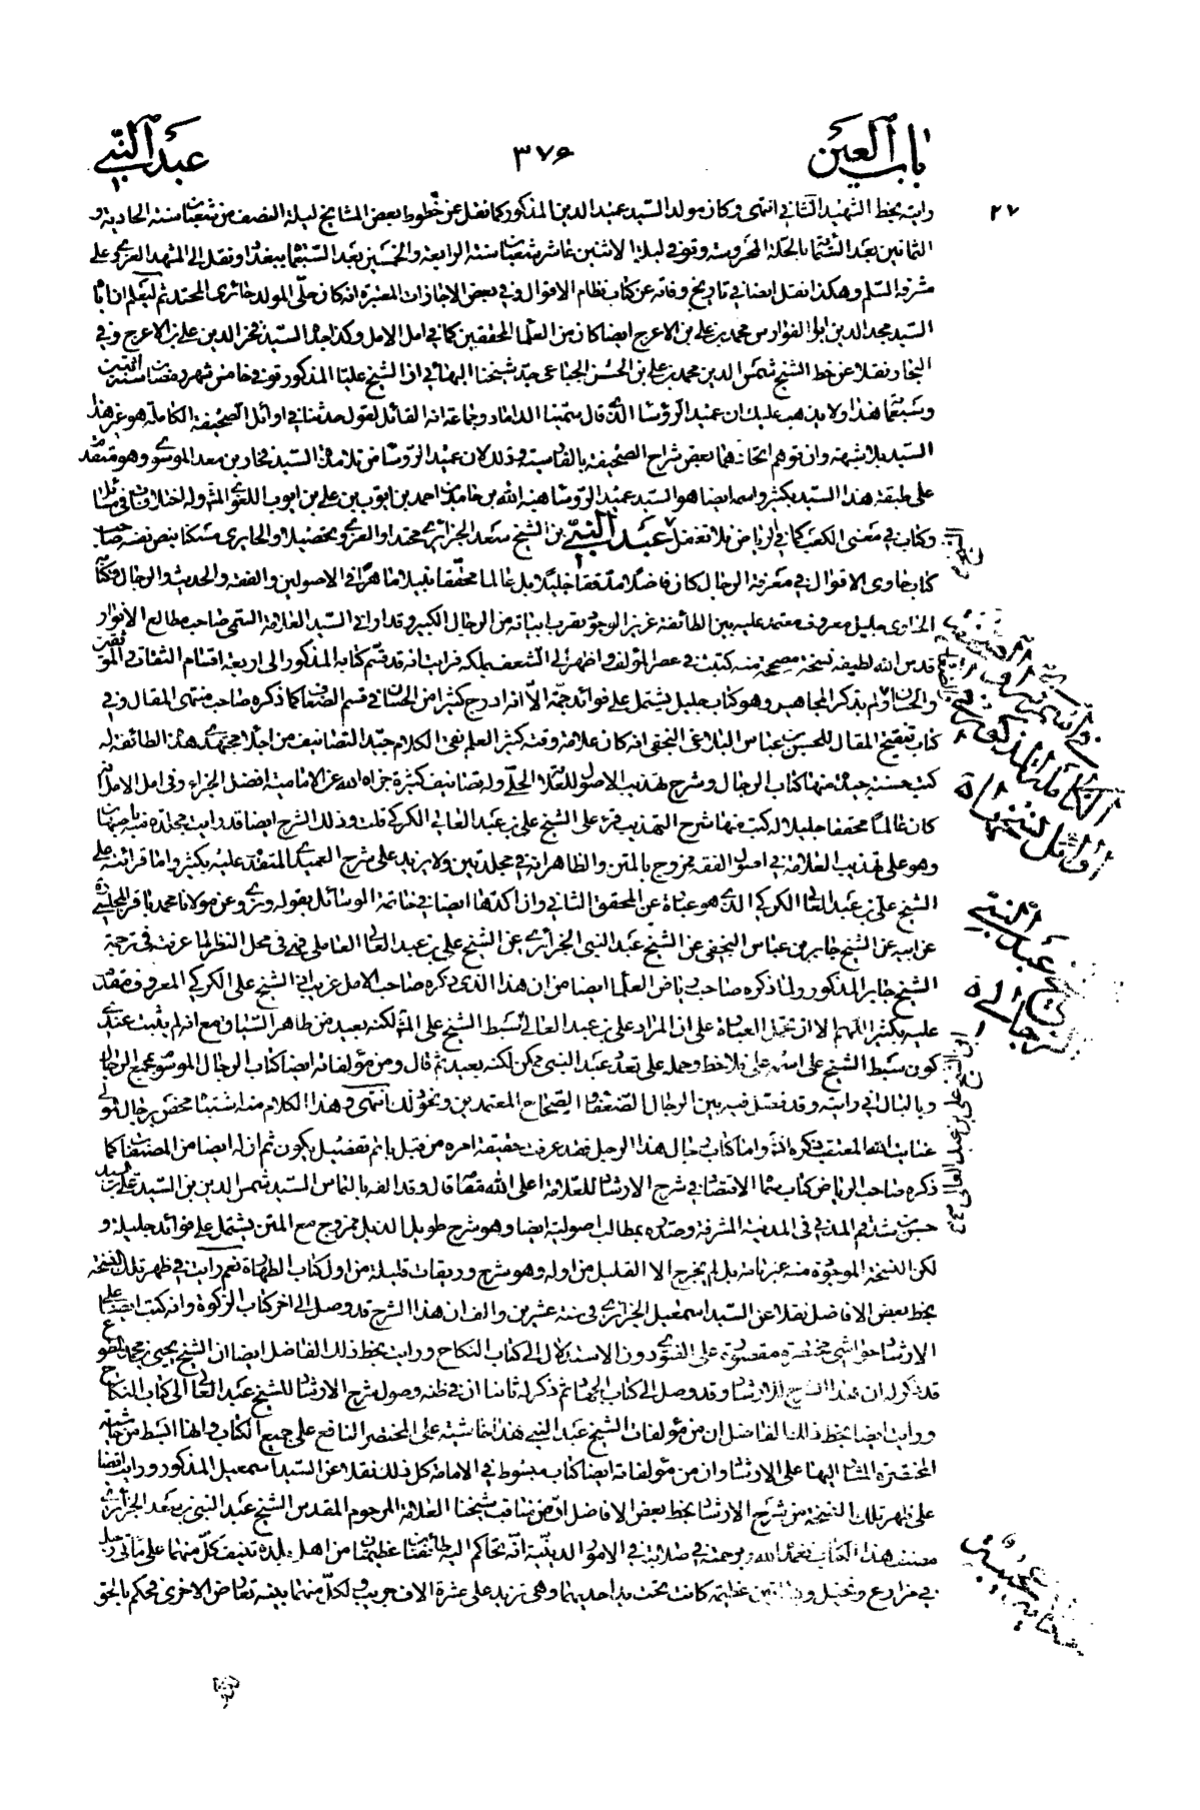 باب العين
٣٧۶
عبد النبي
٢٧
رايته بخط الشهيد الثاني انتهى وكان مولد السيد عميد الدين المذكور كما نقل عن خطوط بعض المشايخ ليلة النصف من شعبان سنة الحادية و
الثمانين بعد الستمائة بالحلة المحروسة وتوفي ليلة الاثنين عاشر شعبان سنة الرابعة والخمسين بعد السبعمائة ببغداد ونقل الى المشهد الغروي على
مشرفه السلم وهكذا نقل ايضا في تاريخ وفاته عن كتاب نظام الاقوال وفي بعض الاجازات المعتبرة انه كان حلي المولد حائري المحتد ثم ليعلم ان ابا
السيد مجد الدين ابو الفوارس محمد بن علي بن الاعرج ايضا كان من العلماء المحققين كما في امل الامل وكذا جده السيد فخر الدين علي بن الاعرج وفي
البحار نقلا عن خط الشيخ شمس الدين محمد بن علي بن الحسن الجباعي جد شيخنا البهائي ان الشيخ عليا المذكور توفي في خامس شهر رمضان سنة اثنتين
وسبعمائة هذا ولا يذهب عليك ان عميد الرؤساء الذي قال سمينا الداماد وجماعة انه القائل لقول حدثنا في اوائل الصحيفة الكاملة هو غير هذا
السيد بلا شبهة وان توهم اتحادهما بعض شراح الصحيفة بالفارسية وذلك لان عميد الرؤساء من تلامذة السيد فخار بن معد الموسوي وهو متقدم
على طبقة هذا السيد بكثير واسمه ايضا هو السيد عميد الرؤساء هبة الله بن حامد بن احمد بن ايوب بن علي بن ايوب اللغوي المشهور له اختلافات في مسائل
وكتاب في معنى الكعب كما في الرياض فلا تغفل عبد النبي بن الشيخ سعد الجزائري محتدا والغروي تحصيلا والحايري مسكنا بنص نفسه صاحب
كتاب حاوي الاقوال في معرفة الرجال كان فاضلا مدققا جليلا بل عالما محققا نبيلا ماهرا في الاصولين والفقه والحديث والرجال وكتابه
الحاوي جليل معروف معتمد عليه بين الطائفة عزيز الوجود يقرب ابياته من الرجال الكبير وقد اراني السيد العلامة السمي صاحب مطالع الانوار
قدس الله لطيفه نسخة مصححة منه كتبت في عصر المؤلف واظهر لي الشعف بملكه فرايت انه قد قسم كتابه المذكور الى اربعة اقسام الثقات في الموثقين
والحسان ولم يذكر المجاهيل وهو كتاب جليل يشتمل على فوائد جمة الا انه ادرج كثيرا من الحسان في قسم الضعفاء كما ذكره صاحب منتهى المقال وفي
كتاب تنقيح المقال للحسن بن عباس البلاغي النجفي انه كان علامة وقته كثير العلم نقي الكلام جيد التصانيف من اجلاء مجتهدي هذه الطائفة له
كتب حسنة جيدة منها كتاب الرجال وشرح تهذيب الاصول للعلامة الحلي وله تصانيف كثيرة جزاه الله عن الامامية افضل الجزاء وفي امل الامل انه
كان عالما محققا جليلا له كتب منها شرح التهذيب قرء على الشيخ علي بن عبد العالي الكركي قلت وذلك الشرح ايضا قد رايت مجلده منه باصبهان
وهو على تهذيب العلامة في اصول الفقه ممزوج بالمتن والظاهر انه في مجلدتين ولا يزيد على شرح العميدي المتقدم عليه بكثير واما قرائته على
الشيخ علي بن عبد العالي الكركي الذي هو عبارة عن المحقق الثاني وان اكدها ايضا في خاتمة الوسائل بقوله ونروي عن مولانا محمد باقر المجلسي
عن ابيه عن الشيخ جابر بن عباس النجفي عن الشيخ عبد النبي الجزائري عن الشيخ علي بن عبد العالي العاملي فهي في محل النظر لما عرفت في ترجمة
الشيخ جابر المذكور ولما ذكره صاحب رياض العلماء ايضا من ان هذا الذي ذكره صاحب الامل غريب في الشيخ علي الكركي المعروف مقدم
عليه بكثير اللهم الا ان تحمل العبارة على ان المراد علي بن عبد العالي سبط الشيخ علي المشهور لكنه بعيد من ظاهر السياق مع انه لم يثبت عندي
كون سبط الشيخ علي اسمه علي فلاحظ وحمله على تعدد عبد النبي ممكن لكنه بعيد ثم قال ومن مؤلفاته ايضا كتاب الرجال الموسوم بمجمع الرجال
وبالبال اني رايته وقد فصل فيه بين الرجال الضعفاء الصحاح المعتمدين ونحو ذلك انتهى وهذا الكلام منه اشتباه محض برجال مولى
عناية الله المعتقب ذكره انشاء واما كتاب رجال هذا الرجل فقد عرفت حقيقة امره من قبل باتم تفصيل يكون ثم ان له ايضا من المصنفات كما
ذكره صاحب الرياض كتاب سماه الاقتصاد في شرح الارشاد للعلامة اعلى الله مقامه قال وقد الفه بالتماس السيد شمس الدين بن السيد علي بن
حسن بن شدقم المدني في المدينة المشرفة وصدره بمطالب اصولية ايضا وهو شرح طويل الذيل ممزوج مع المتن يشتمل على فوائد جليلة و
لكن النسخة الموجودة منه غير تامة بل لم يخرج الا القليل من اوله وهو شرح وريقات قليلة من اول كتاب الطهارة نعم رايت في ظهر تلك النسخة
بخط بعض الافاضل نقلا عن السيد اسمعيل الجزائري في سنة عشرين والف ان هذا الشرح قد وصل الى اخر كتاب الزكوة وانه كتب ايضا على
الارشاد حواشي مختصرة مقصورة على الفتوى دون الاستدلال الى كتاب النكاح ورايت بخط ذلك الفاضل ايضا ان الشيخ يحيى بن محمد
قد ذكر له ان هذا الشرح للارشاد وقد وصل الى كتاب الجهاد ثم ذكر له ثانيا ان في ظنه وصول شرح الارشاد للشيخ عبد العالي الى كتاب النكاح
ورايت ايضا بخط ذلك الفاضل ان من مؤلفات الشيخ عبد النبي هذا حاشية على المختصر النافع على جميع الكتاب وانها ابسط من حاشيته
المختصرة المشار اليها على الارشاد وان من مؤلفاته ايضا كتاب مبسوط في الامامة كل ذلك نقلا عن السيد اسمعيل المذكور ورايت ايضا
على ظهر تلك النسخة من شرح الارشاد بخط بعض الافاضل ان من مناقب شيخنا العلامة المرحوم المقدس الشيخ عبد النبي بن سعد الجزائري
مصنف هذا الكتاب تغمده الله برحمته في صلابته في الامور الدينية انه تحاكم اليه طائفتان عظيمتان من اهل بلده تنيف كل منهما على مائتي رجل
في مزارع ونخيل عظيمة كانت تحت يد احديهما وهي تزيد على عشرة الاف جريب ولكل منهما بينة تعارض الاخرى فحكم بالحق
الشيخ عبد النبي
الرجالي
ابن الشيخ علي بن عبد العالي